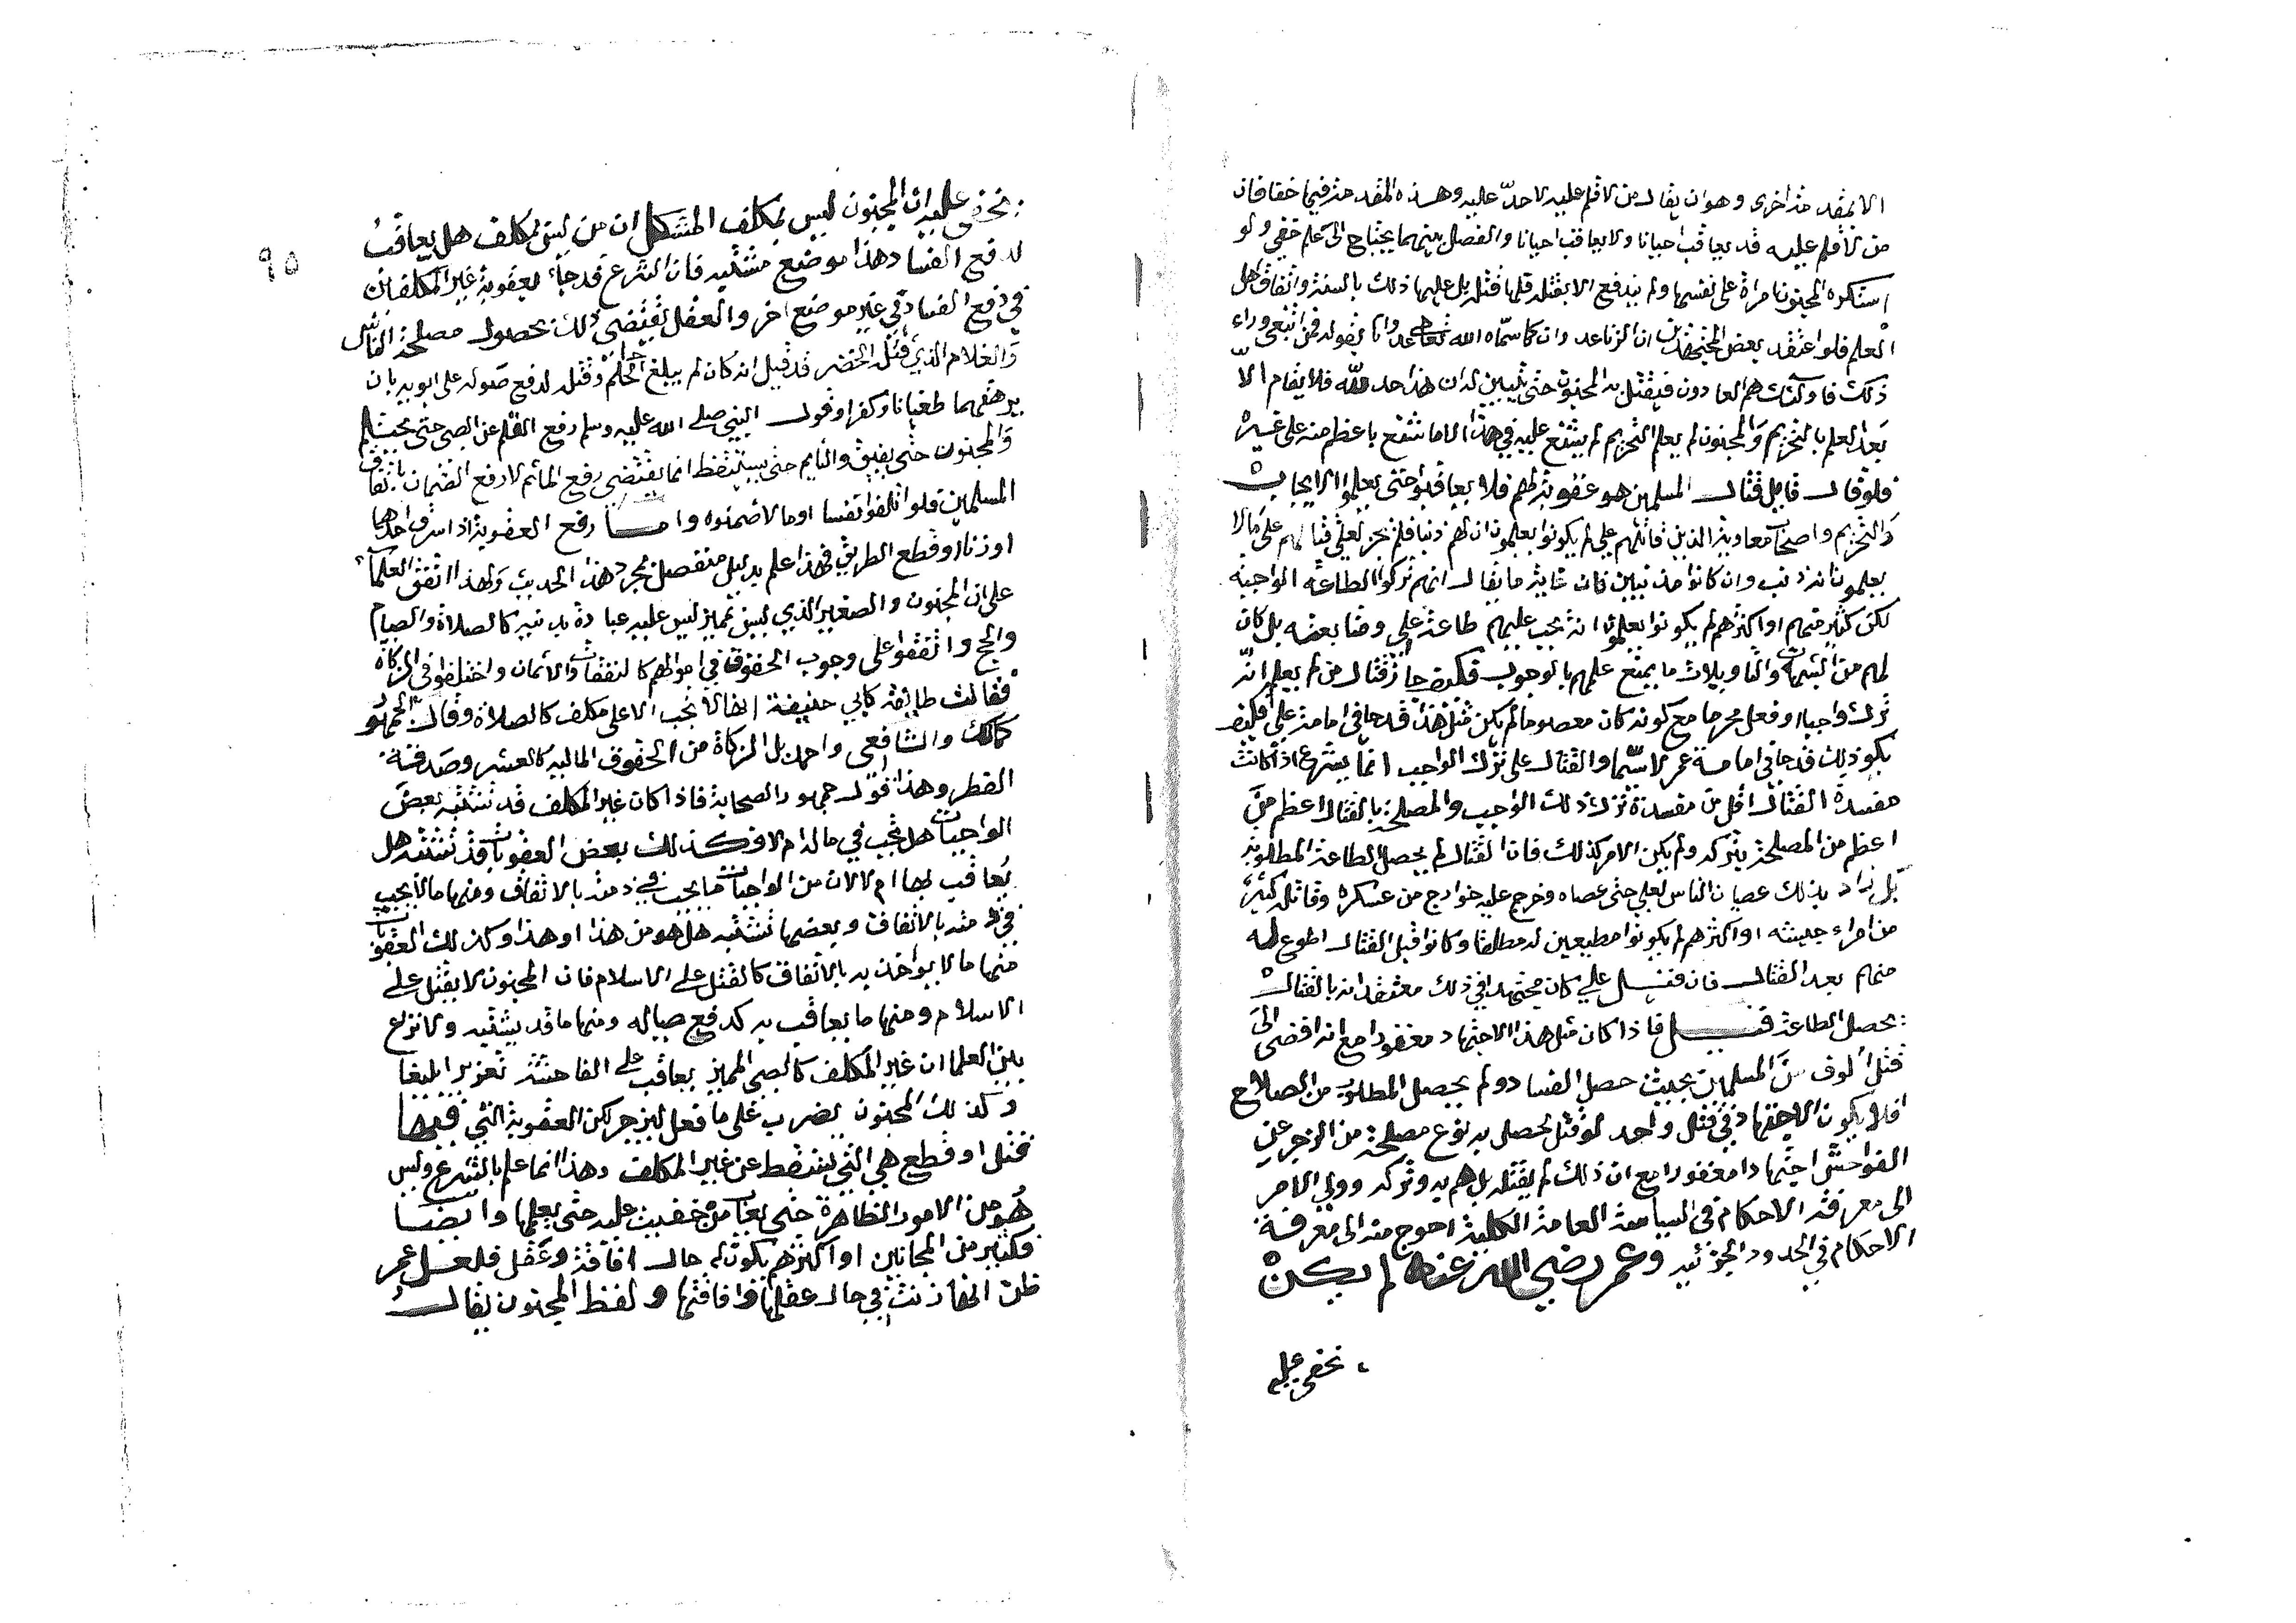 الا بمقدمة اخرى وهو ان يقال من لا قلم عليه لا حد عليه وهذه المقدمة فيها خفا فان
من لا قلم عليه قد يعاقب احيانا ولا يعاقب احيانا والفصل بينهما يحتاج الى علم خفي ولو
استكره المجنون امراة على نفسها ولم يندفع الا بقتله فلها قتله بل عليها ذلك بالسنة واتفاق اهل
العلم فلو اعتقد بعض المجتهدين ان الزنا عدوان كما سماه الله تعالى عدوانا بقوله فمن ابتغى وراء
ذلك فاولئك هم العادون فيقتل به المجنون حتى يتبين له ان هذا حد لله فلا يقام الا
بعد العلم بالتحريم والمجنون لم يعلم التحريم لم يشنع عليه في هذا الا من شنع باعظم منه على غيره
فلو قال قايل قتال المسلمين هو عقوبة لهم فلا يعاقبوا حتى يعلموا الايجاب
والتحريم واصحاب معاوية الذين قاتلهم علي لم يكونوا يعلمون ان لهم ذنبا فلم يجز لعلي قتالهم على مالا
يعلمون انه ذنب وان كانوا مذنبين فان غاية ما يقال انهم تركوا الطاعة الواجبة
لكن كثير منهم او اكثرهم لم يكونوا يعلمون انه تجب عليهم طاعة علي ومتابعته بل كان
لهم من الشبهات والتاويلات ما يمنع علمهم بالوجوب فكيف جاز قتال من لم يعلم انه
ترك واجبا او فعل محرما مع كونه كان معصوما لم يكن مثل هذا قدحا في امامة علي فكيف
يكون ذلك قدحا في امامة عمر لا سيما والقتال على ترك الواجب انما يشرع اذا كانت
مفسدة القتال اقل من مفسدة ترك ذلك الواجب والمصلحة بالقتال اعظم من
اعظم من المصلحة بتركه ولم يكن الامر كذلك فان القتال لم يحصل الطاعة المطلوبة
بل زاد بذلك عصيان الناس لعلي حتى عصاه وخرج عليه خوارج من عسكره وقاتله كثير
من امراء جيشه او اكثرهم لم يكونوا مطيعين له مطلقا وكانوا قبل القتال اطوع له
منهم بعد القتال فان قيل علي كان مجتهدا في ذلك معتقدا انه بالقتال
يحصل الطاعة قيل فاذا كان مثل هذا الاجتهاد مغفورا مع انه افضى الى
قتل الوف من المسلمين بحيث حصل الفساد ولم يحصل المطلوب من الصلاح
افلا يكون الاجتهاد في قتل واحد لو قتل لحصل به نوع مصلحة من الزجر عن
الفواحش اجتهادا مغفورا مع ان ذلك لم يقتله بل هم به وتركه وولي الامر
الى معرفة الاحكام في السياسة العامة الكلية احوج منه الى معرفة
الاحكام في الحدود الجزئيه وعمر رضي الله عنه لم يكن
نخفى عليه
٩٥
نخفى عليه ان المجنون ليس بمكلف المشكل ان من ليس بمكلف هل يعاقب
لدفع الفساد هذا موضع مشتبه فان الشرع قد جاء بعقوبة غير المكلفين
في دفع الفساد في غير موضع اخر والعقل يقتضي ذلك بحصول مصلحة الناس
والغلام الذي قتله الخضر قد قيل انه كان لم يبلغ الحلم وقتله لدفع صوله على ابويه بان
يرهقهما طغيانا وكفرا وقول النبي صلى الله عليه وسلم رفع القلم عن الصبي حتى يحتلم
والمجنون حتى يفيق والنايم حتى يستيقظ انما يقتضي رفع الماثم لا رفع الضمان باتفاق
المسلمين فلو اتلفوا نفسا او مالا ضمنوه واما رفع العقوبة اذا سرق احدهما
او زنا او قطع الطريق فهذا علم بدليل منفصل بمجرد هذا الحديث ولهذا اتفق العلماء
على ان المجنون والصغير الذي ليس بمميز ليس عليه عبادة بدنيه كالصلاة والصيام
والحج واتفقوا على وجوب الحقوق في اموالهم كالنفقات والاثمان واختلفوا في الزكاة
فقالت طايفة كابي حنيفة انها لا تجب الا على مكلف كالصلاة وقال الجمهور
كمالك والشافعي واحمد بل الزكاة من الحقوق الماليه كالعشر وصدقة
الفطر وهذا قول جمهور الصحابة فاذا كان غير المكلف قد تشتبه بعض
الواجبات هل تجب في ماله ام لا فكذلك بعض العقوبات قد تشتبه هل
يعاقب بها ام لا لان من الواجبات ما يجب في ذمته بالاتفاق ومنها مالا يجب
في ذمته بالاتفاق وبعضها تشتبه هل هو من هذا او هذا وكذلك العقوبات
منها مالا يواخذ به بالاتفاق كالقتل على الاسلام فان المجنون لا يقتل على
الاسلام ومنها ما يعاقب به كدفع صياله ومنها ما قد يشتبه ولا نزاع
بين العلما ان غير المكلف كالصبي المميز يعاقب على الفاحشة تعزيرا بليغا
وكذلك المجنون يضرب على ما فعل لينزجر لكن العقوبة التي فيها
قتل او قطع هي التي تسقط عن غير المكلف وهذا انما علم بالشرع وليس
هو من الامور الظاهرة حتى يعاب من خفيت عليه حتى يعلمها وايضا
فكثير من المجانين او اكثرهم يكون له حال افاقة وعقل فلعل عمر
ظن انها زنت في حال عقلها وافاقتها ولفظ المجنون يقال